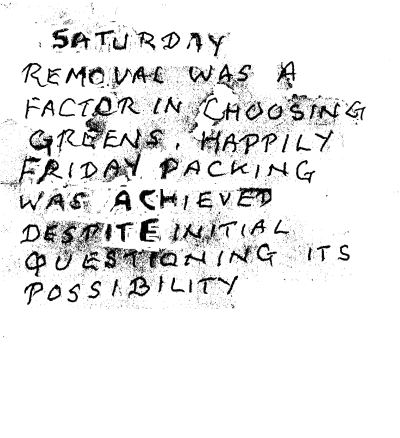 SATURDAY
REMOVAL WAS A
FACTOR IN CHOOSING
GREENS. HAPPILY
FRIDAY PACKING
WAS ACHIEVED
DESPITE INITIAL
QUESTIONING ITS
POSSIBILITY